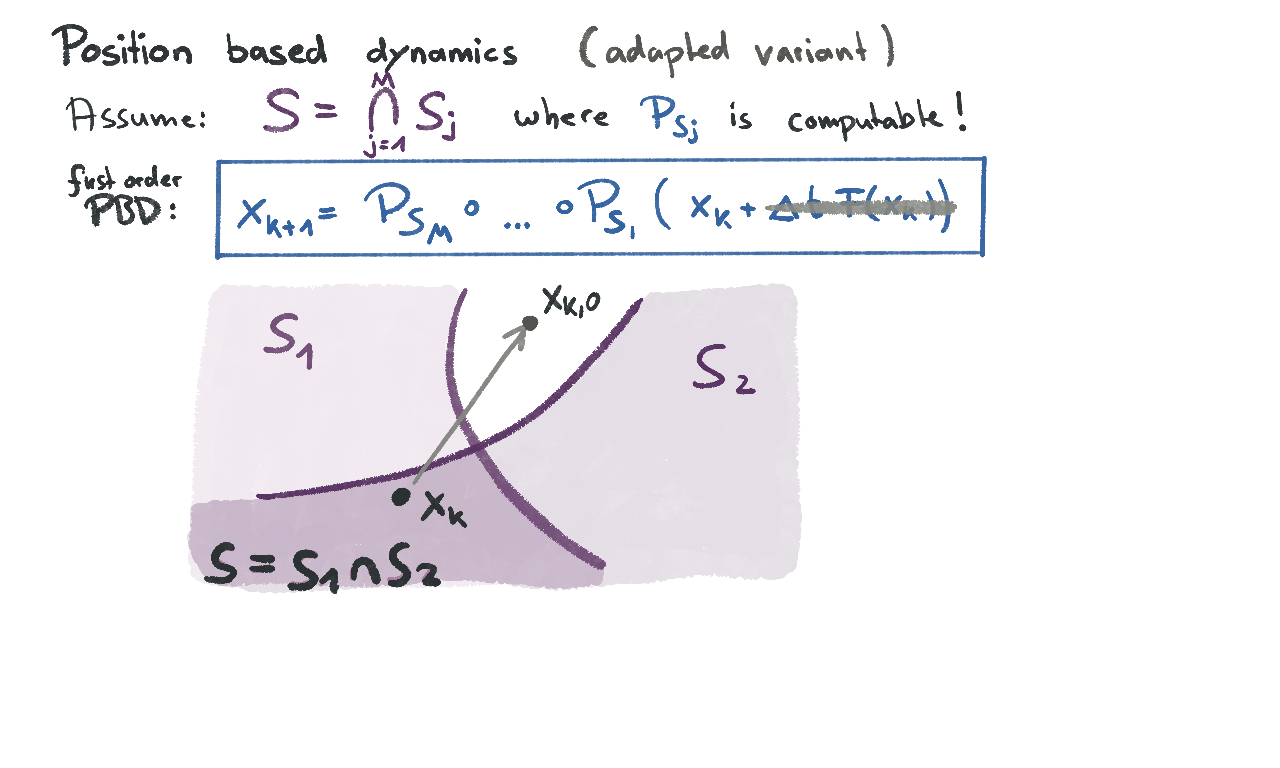 Position based dynamics (adapted variant)
Assume: S = ⋂_{j=1}^{M} S_j where P_{S_j} is computable!
first order
PBD: x_{k+1} = P_{S_M} ∘ ... ∘ P_{S_1} ( x_k +
x_{k,0}
S_1
S_2
x_k
S = S_1 ∩ S_2